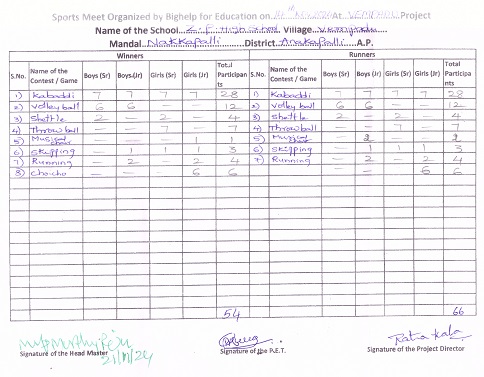 Sports Meet Organized by Bighelp for Education on At Project
Name of the School Z.P. High School Village
Mandal Nakkapalli District Anakapalli A.P.
Winners Runners
S.No. Name of the Contest / Game Boys (Sr) Boys (Jr) Girls (Sr) Girls (Jr) Total Participants S.No. Name of the Contest / Game Boys (Sr) Boys (Jr) Girls (Sr) Girls (Jr) Total Participants
1) Kabaddi 7 7 7 7 28 1) Kabaddi 7 7 7 7 28
2) Volley ball 6 6 — — 12 2) Volley ball 6 6 — — 12
3) Shuttle 2 — 2 — 4 3) Shuttle 2 — 2 — 4
4) Throw ball — — 7 — 7 4) Throw ball — — 7 — 7
5) Musical chair — — 1 1 5) Musical chair — 2 — — 2
6) Skipping — 1 1 1 3 6) Skipping — 1 1 1 3
7) Running — 2 — 2 4 7) Running — 2 — 2 4
8) cho-cho — — 6 6 6 6
54 66
21/11/24 Ratna Kala
Signature of the Head Master Signature of the P.E.T. Signature of the Project Director